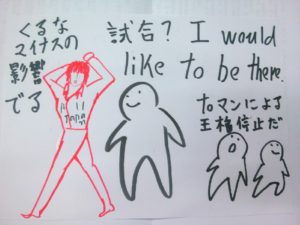 くるな
マイナスの
影響
でる
試合? I would
like to be there.
toマンによる
王権停止だ